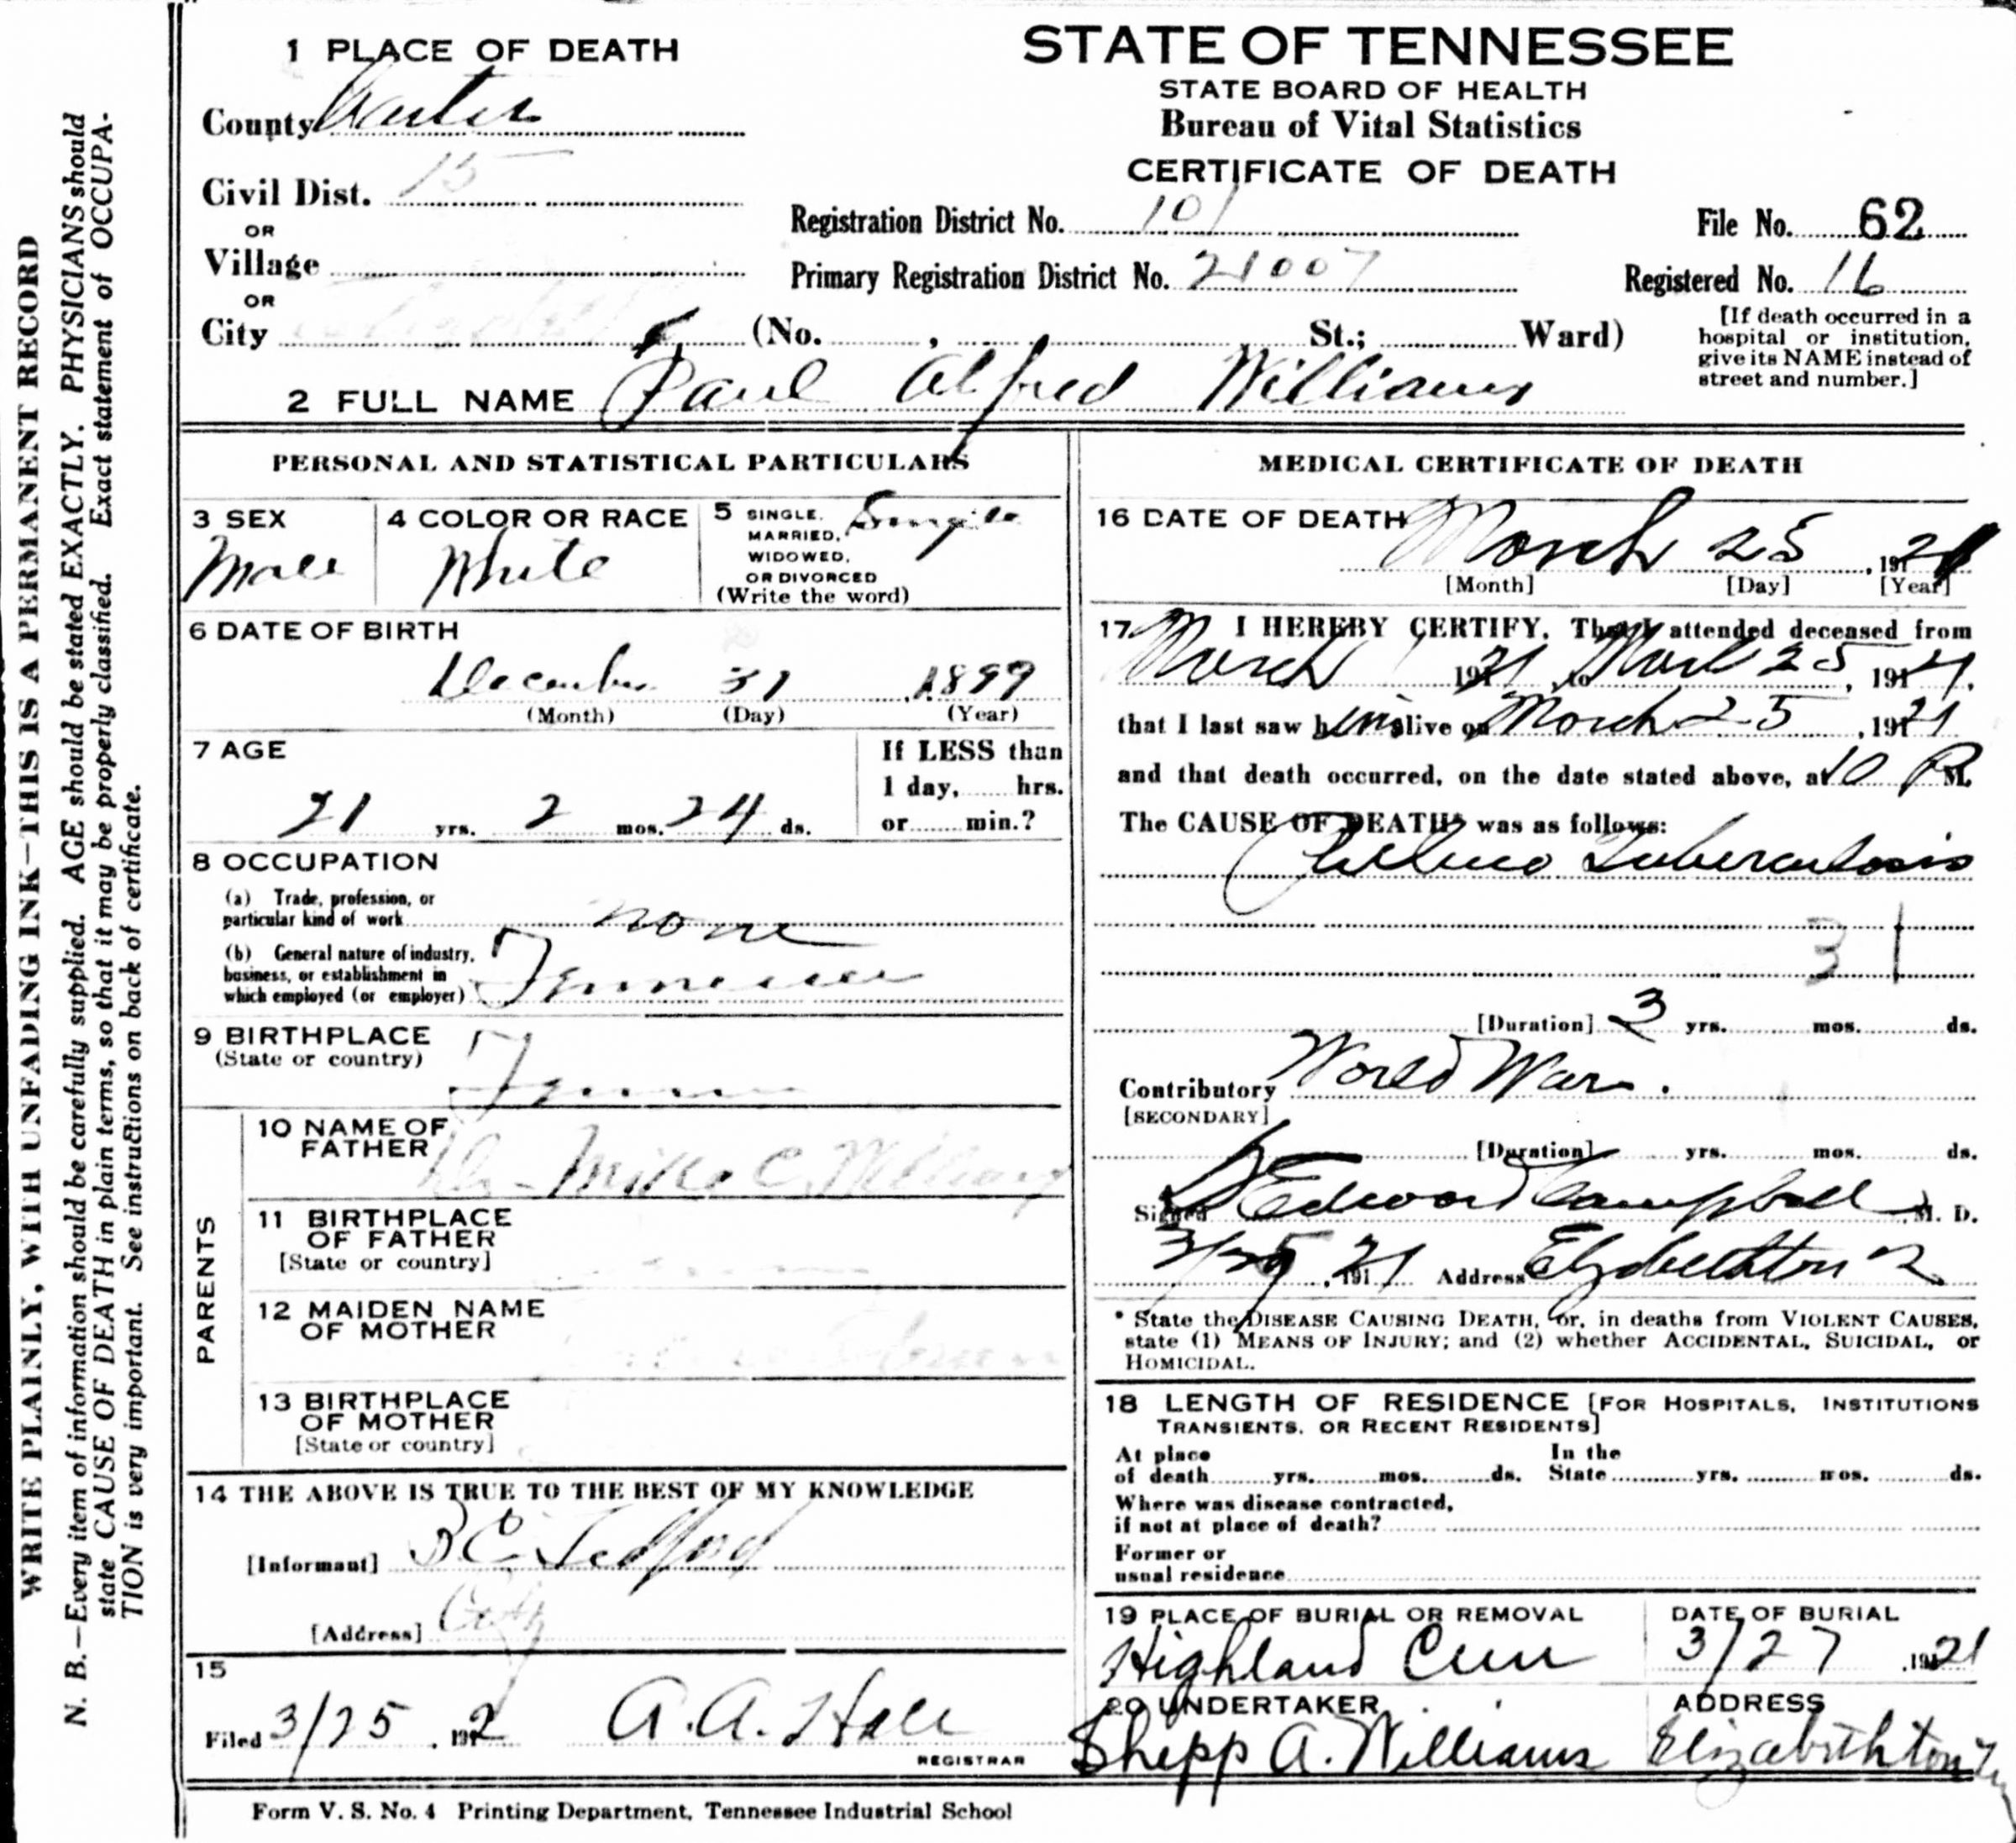 WRITE PLAINLY, WITH UNFADING INK—THIS IS A PERMANENT RECORD
N. B.—Every item of information should be carefully supplied. AGE should be stated EXACTLY. PHYSICIANS should
state CAUSE OF DEATH in plain terms, so that it may be properly classified. Exact statement of OCCUPA-
TION is very important. See instructions on back of certificate.
1 PLACE OF DEATH
County Carter
Civil Dist. 15
OR
Village
OR
City (No. , St.; Ward)
STATE OF TENNESSEE
STATE BOARD OF HEALTH
Bureau of Vital Statistics
CERTIFICATE OF DEATH
Registration District No. 101
File No. 62
Primary Registration District No. 21007
Registered No. 16
[If death occurred in a
hospital or institution,
give its NAME instead of
street and number.]
2 FULL NAME Paul Alfred Williams
PERSONAL AND STATISTICAL PARTICULARS
3 SEX
Male
4 COLOR OR RACE
White
5 SINGLE,
MARRIED,
WIDOWED,
OR DIVORCED
(Write the word)
Single
6 DATE OF BIRTH
December 31 , 1899
(Month) (Day) (Year)
7 AGE
21 yrs. 2 mos. 24 ds.
If LESS than
1 day, hrs.
or min.?
8 OCCUPATION
(a) Trade, profession, or
particular kind of work none
(b) General nature of industry,
business, or establishment in
which employed (or employer) Tennessee
9 BIRTHPLACE
(State or country) Tenn
PARENTS
10 NAME OF
FATHER Mike C. Williams
11 BIRTHPLACE
OF FATHER
[State or country]
12 MAIDEN NAME
OF MOTHER
13 BIRTHPLACE
OF MOTHER
[State or country]
14 THE ABOVE IS TRUE TO THE BEST OF MY KNOWLEDGE
[Informant] B C Tedford
[Address] City
15
Filed 3/25 , 192 A. A. Hall
REGISTRAR
MEDICAL CERTIFICATE OF DEATH
16 DATE OF DEATH
March 25 , 1921
[Month] [Day] [Year]
17 I HEREBY CERTIFY, That I attended deceased from
March 1921, to March 25, 1921,
that I last saw him alive on March 25, 1921
and that death occurred, on the date stated above, at 10 P M.
The CAUSE OF DEATH* was as follows:
Tuberculosis
31
[Duration] 3 yrs. mos. ds.
Contributory World War.
[SECONDARY]
[Duration] yrs. mos. ds.
Signed Edward Campbell, M. D.
21 Address Elizabethton
* State the DISEASE CAUSING DEATH, or, in deaths from VIOLENT CAUSES,
state (1) MEANS OF INJURY; and (2) whether ACCIDENTAL, SUICIDAL, or
HOMICIDAL.
18 LENGTH OF RESIDENCE [FOR HOSPITALS, INSTITUTIONS
TRANSIENTS, OR RECENT RESIDENTS]
At place
of death yrs. mos. ds.
In the
State yrs. mos. ds.
Where was disease contracted,
if not at place of death?
Former or
usual residence
19 PLACE OF BURIAL OR REMOVAL
Highland Cem
DATE OF BURIAL
3/27 , 1921
20 UNDERTAKER
Shepp A. Williams
ADDRESS
Elizabethton
Form V. S. No. 4 Printing Department, Tennessee Industrial School